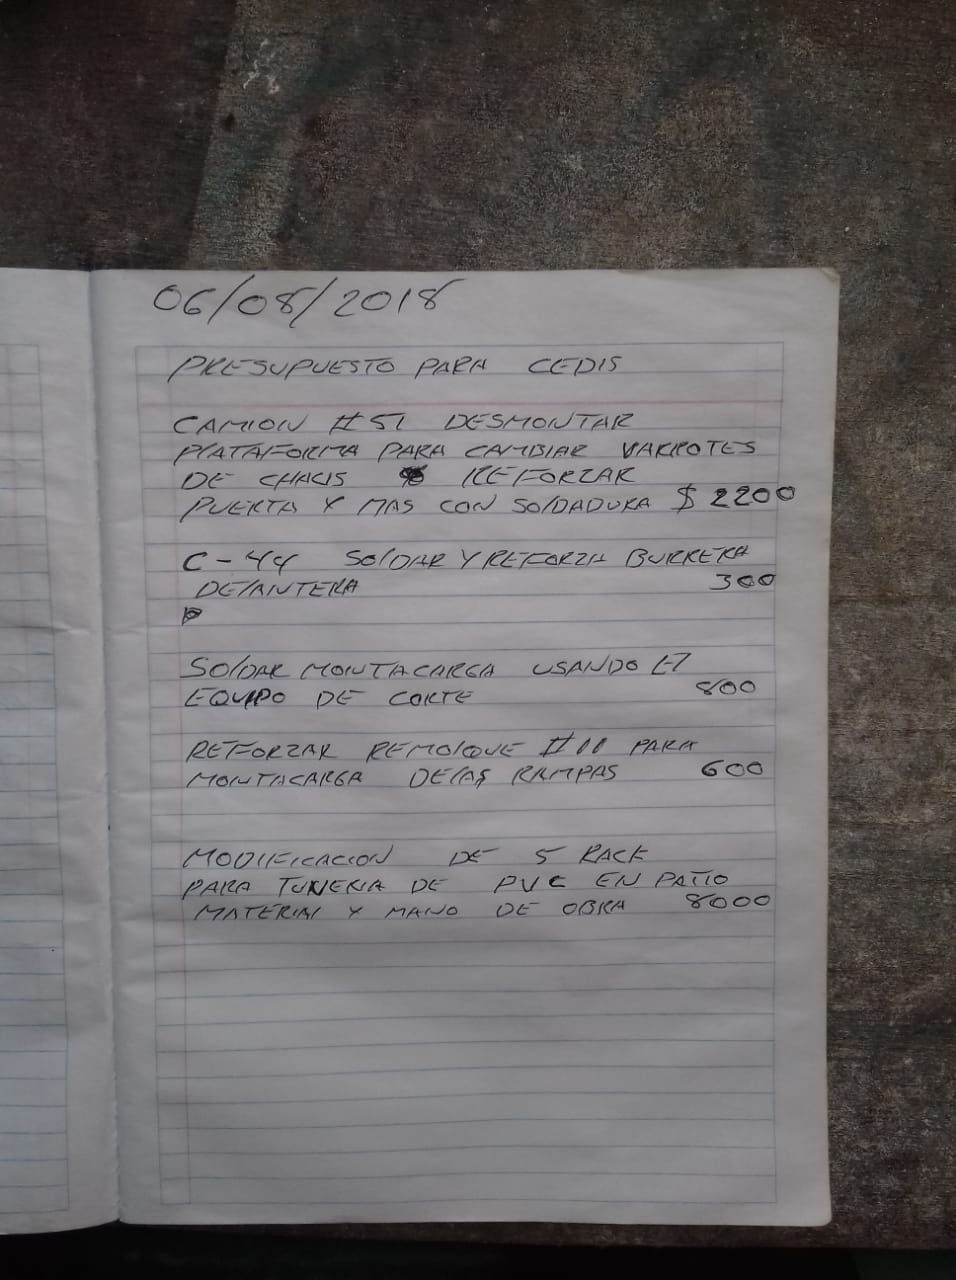 06/08/2018
PRESUPUESTO PARA CEDIS
CAMION #51 DESMONTAR
PlATAFORMA PARA CAMBIAR BARROTES
DE CHACIS REFORZAR
PUERTA Y MAS CON SOlDADURA $ 2200
C-44 SOlDAR Y REFORZA BURRERA
DElANTERA 300
SOlDAR MONTACARGA USANDO El
EQUIPO DE CORTE 800
REFORZAR REMOlQUE #11 PARA
MONTACARGA DE lAS RAMPAS 600
MODIFICACION DE 5 RACK
PARA TUVERIA DE PVC EN PATIO
MATERIAl Y MANO DE OBRA 8000